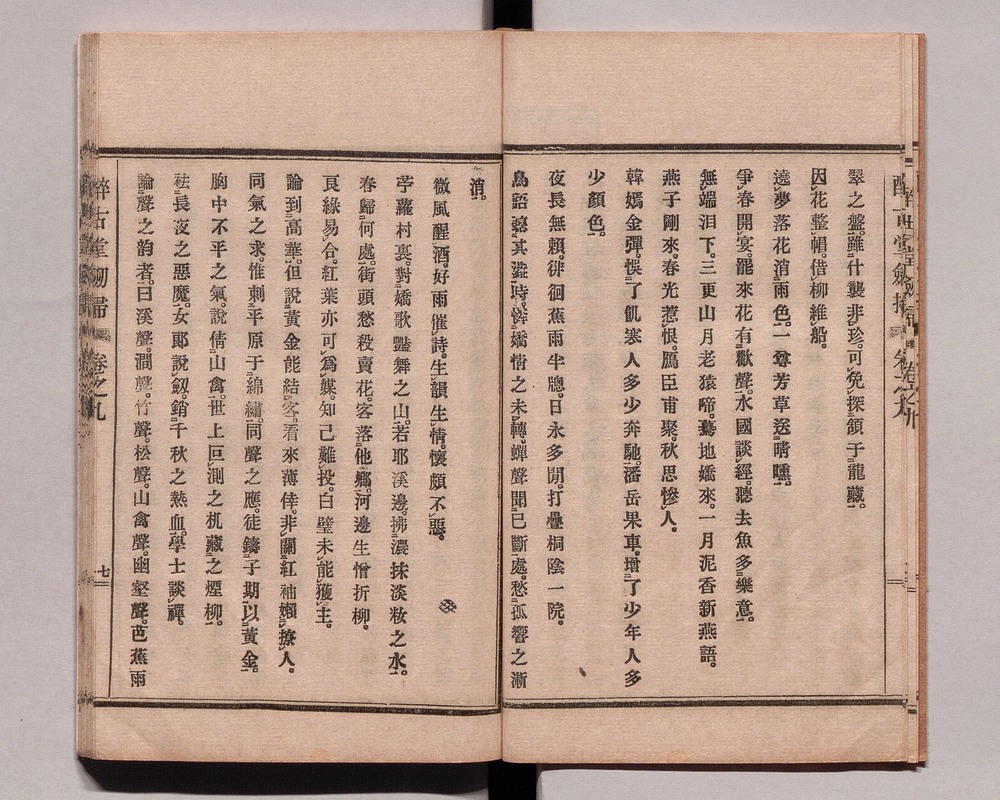 翠之盤。雖什襲非珍。可免探頷于龍藏。
因花整帽。借柳維船。
遶夢落花消雨色。一尊芳草送晴曛。
爭春開宴。罷來花有歡聲。水國談經。聽去魚多樂意。
無端泪下。三更山月老猿啼。驀地嬌來。一月泥香新燕語。
燕子剛來。春光惹恨。鴈臣甫聚。秋思慘人。
韓嫣金彈。悞了飢寒人多少奔馳。潘岳果車。增了少年人多
少顏色。
夜長無賴。徘徊蕉雨半牕。日永多閒。打疊桐陰一院。
鳥語聽其澁時。憐嬌情之未囀。蟬聲聞已斷處。愁孤響之漸
消。
微風醒酒。好雨催詩。生韻生情。懷頗不惡。
苧蘿村裏。對嬌歌豔舞之山。若耶溪邊。拂濃抹淡妝之水。
春歸何處。街頭愁殺賣花。客落他鄉。河邊生憎折柳。
良緣易合。紅葉亦可爲媒。知己難投。白璧未能獲主。
論到高華。但說黃金能結客。看來薄倖。非關紅袖嬾撩人。
同氣之求。惟刺平原于綿繡。同聲之應。徒鑄子期以黃金。
胸中不平之氣。說倩山禽。世上叵測之机。藏之煙柳。
祛長夜之惡魔。女郎說劒。銷千秋之熱血。學士談禪。
論聲之韵者。曰溪聲。澗聲。竹聲。松聲。山禽聲。幽壑聲。芭蕉雨
醉古堂劒掃 卷之九
七